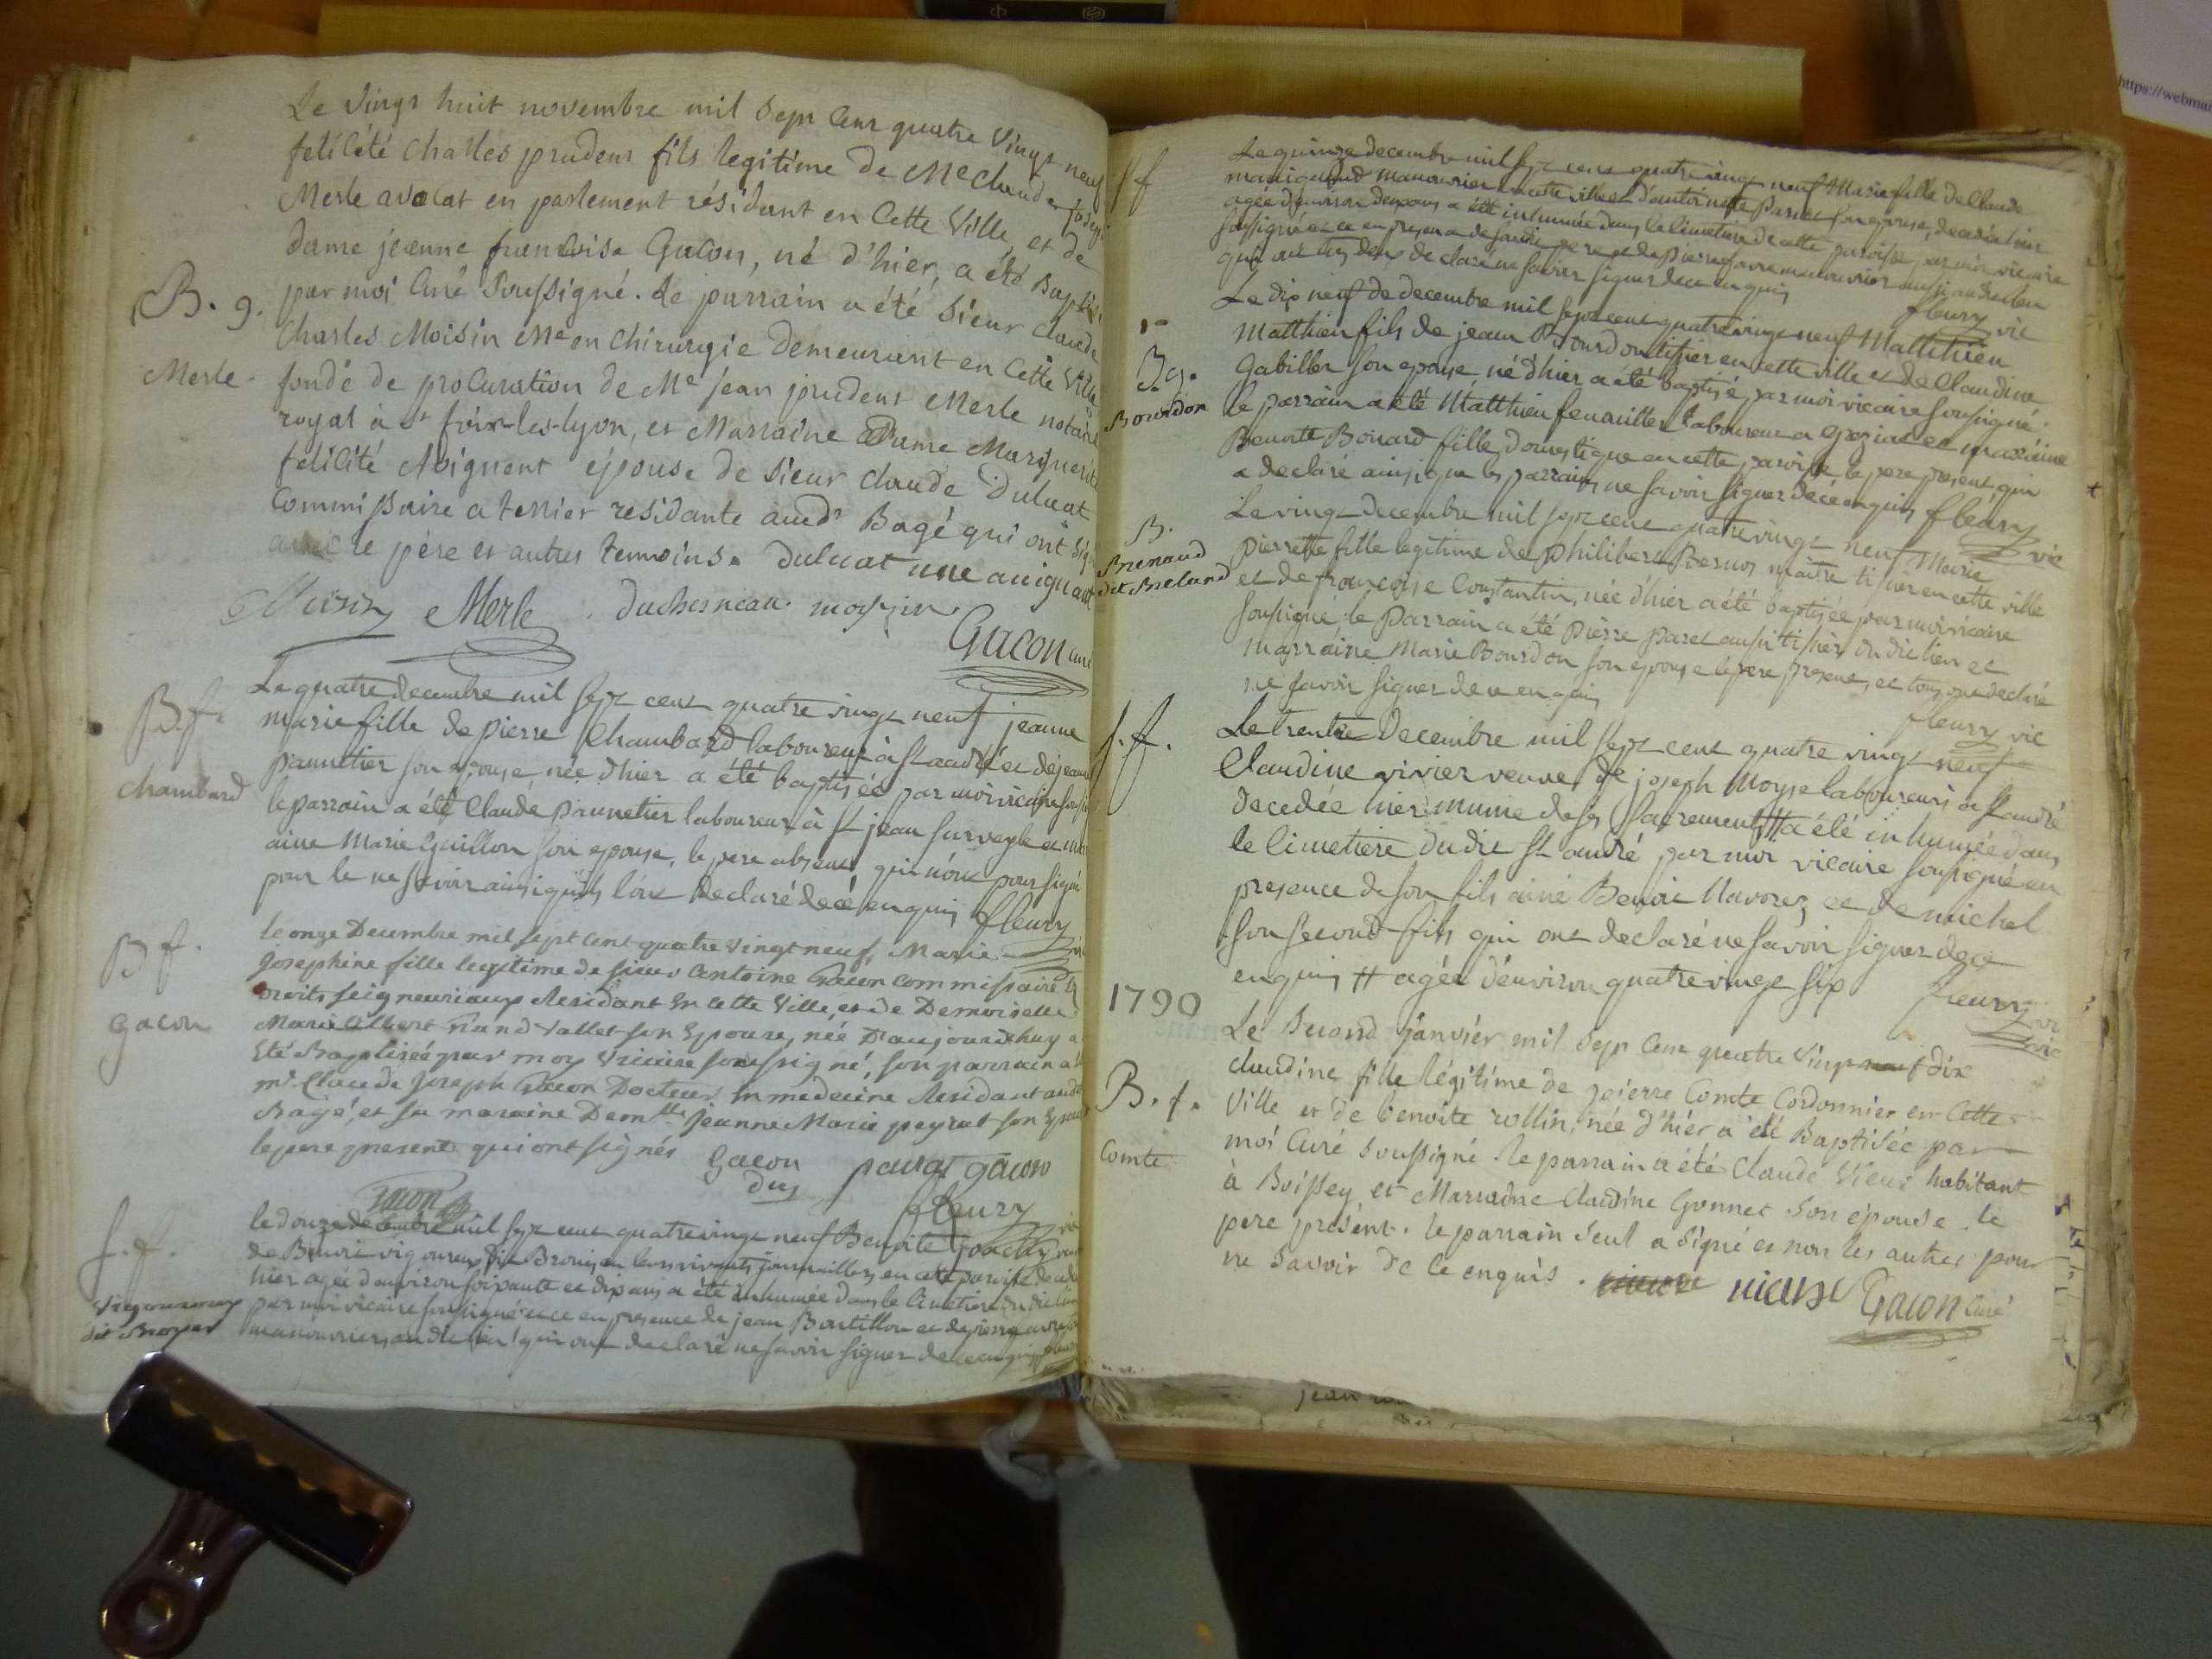 Le vingt huit novembre mil sept cent quatre vingt neuf
felicité charles prudent fils legitime de Me claude joseph
Merle avocat en parlement résidant en cette ville, et de
dame jeanne francoise Gacon, né d'hiér, a été Baptisé
par moi Curé soussigné. le parrain a été sieur claude
B. g.
Charles Moisin Me en Chirurgie demeurant en cette ville
Merle.
fondé de procuration de Me jean prudent Merle notaire
royal à st foix-les-lyon, et Marraine Dame Marguerite
felicité Avignent épouse de sieur claude Duluat
Commissaire a terrier residante aud Bagé qui ont signé
avec le père et autres temoins. duluat née auignant
Moisin Merle duchesneau mossin
Gacon curé
Le quatre decembre mil sept cent quatre vingt neuf jeanne
B. f.
marie fille de pierre Chambard laboureur à st andré et de jeanne
pannetier son epouse née d'hier a été baptisée par moi vicaire soussigné
chambard
le parrain a été Claude pannetier laboureur à st jean sur veyle et mar
aine Marie Guillon son epouse, le pere absent, qui n'ont pour signé
pour le ne savoir ainsi qu'ils l'ont declaré de ce enquis fleury
B f.
le onze Decembre mil sept cent quatre vingt neuf, Marie
josephine fille legitime de sieur antoine Gacon commissaire
gacon
droits seigneuriaux Residant En cette Ville, et de Demoiselle
Marie albert son Epouse, née D'aujourdhuy a
Eté Baptisée par moy Vicaire soussigné, son parrain a
mr Claude joseph Gacon Docteur En medecine Residant aud
Bagé, et sa maraine Demlle jeanne Marie peyrat son Epouse
le pere present qui ont signés Gacon peyrat gacon
Gacon
fleury
f. f.
le douze decembre mil sept cent quatre vingt neuf Benoite
de Benoit vigoureux dit Broyer en leurs vivants journailler en cette paroisse decedée
hier agée d'environ soixante et dix ans a été inhumée dans le Cimetiere du dit lieu
vigoureux
dit Broyer
par moi vicaire soussigné et ce en presence de jean Bontillon et de pierre
manouvriers au dit lieu qui ont declaré ne savoir signer de ce enquis fleury
f f
Le quinze decembre mil sept cent quatre vingt neuf Marie fille de Claude
manigand manouvrier en cette ville et d'antoinette paris son epouse, decedée hier
agée d'environ deux ans a été inhumée dans le cimetiere de cette paroisse par moi vicaire
soussigné et ce en presence de son dit pere et de pierre favre manouvrier aussi au dit lieu
qui ont tous deux declaré ne savoir signer de ce enquis
fleury vic
Le dix neuf de decembre mil sept cent quatre vingt neuf Matthieu
Matthieu fils de jean Bourdon tissier en cette ville et de Claudine
B g.
Bourdon
Gabillet son epouse, né d'hier a été baptisé par moi vicaire soussigné.
le parrain a été Matthieu feuaillet laboureur a epeziat et maraine
Benoite Bonard fille domestique en cette paroisse le pere present, qui
a declaré ainsi que les parrains ne savoir signer de ce enquis fleury
vic
Le vingt decembre mil sept cent quatre vingt neuf Marie
B.
Brenaud
dit Breland
pierrette fille legitime de philibert Bernos maitre tissier en cette ville
et de françoise Constantin, née d'hier a été baptisée par moi vicaire
soussigné. le parrain a été pierre paret aussi tissier du dit lieu et
marraine Marie Bourdon son epouse le pere present, et tous ont declaré
ne savoir signer de ce enquis
fleury vic
f. f.
Le trente Decembre mil sept cent quatre vingt neuf
Claudine vivier veuve de joseph Moyse laboureurs a st andré
decedée hier munie de ses sacrements # a été inhumée dans
le cimetiere du dit st andré par moi vicaire soussigné en
presence de son fils ainé Benoit Navorez et de michel
son second fils qui ont declaré ne savoir signer de ce
enquis # agée d'environ quatre vingt six
fleury
vic
1790
Le second janvier mil sept cent quatre vingt neuf dix
B. f.
claudine fille légitime de pierre Comte Cordonnier en cette
ville et de benoite rollin, née d'hiér a été Baptisée par
Comte
moi Curé soussigné. le parrain a été Claude vieux habitant
à Boissey, et Marraine Claudine Gonnet son épouse. le
pere présent. le parrain seul a signé et non les autres pour
ne savoir de ce enquis. vieux Gacon curé
jean
https://webmai